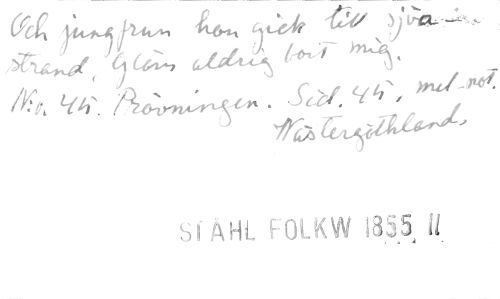 Och jungfrun hon gick till sjöa
strand, Gläns aldrig bort mig.
N:o. 45. Prövningen. Sid. 45, mel. not.
Wästergöthland.
STÅHL FOLKW 1855 II